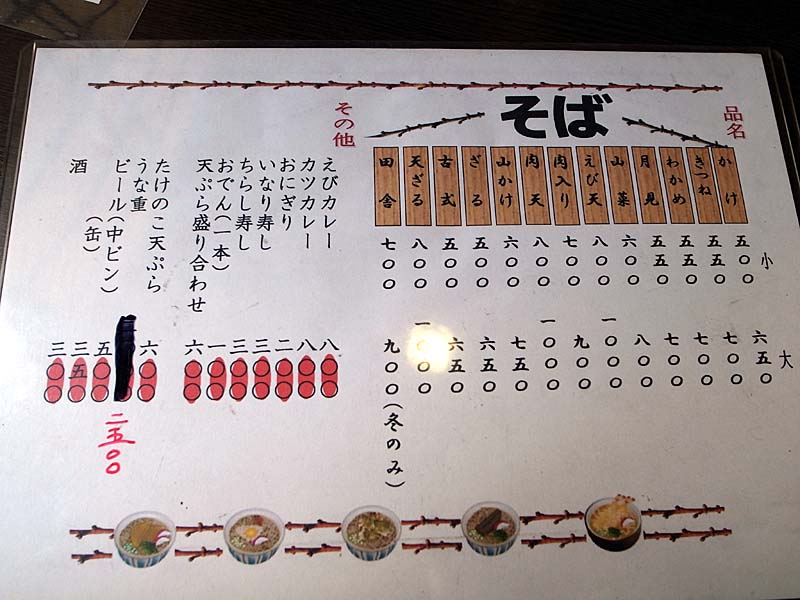 品名
そば
小
大
かけ 五〇〇 六五〇
きつね 五五〇 七〇〇
わかめ 五五〇 七〇〇
月見 五五〇 七〇〇
山菜 六〇〇 八〇〇
えび天 八〇〇 一〇〇〇
肉入り 七〇〇 九〇〇
肉天 八〇〇 一〇〇〇
山かけ 六〇〇 七五〇
ざる 五〇〇 六五〇
古式 五五〇 六五〇
天ざる 八〇〇 一〇〇〇
田舎 七〇〇 九〇〇(冬のみ)
その他
えびカレー 八〇〇
カツカレー 八〇〇
おにぎり 二〇〇
いなり寿し 三〇〇
ちらし寿し 三〇〇
おでん(一本) 一〇〇
天ぷら盛り合わせ 六〇〇
たけのこ天ぷら 六〇〇
うな重 二五〇〇
ビール(中ビン) 五〇〇
(缶) 三五〇
酒 三〇〇